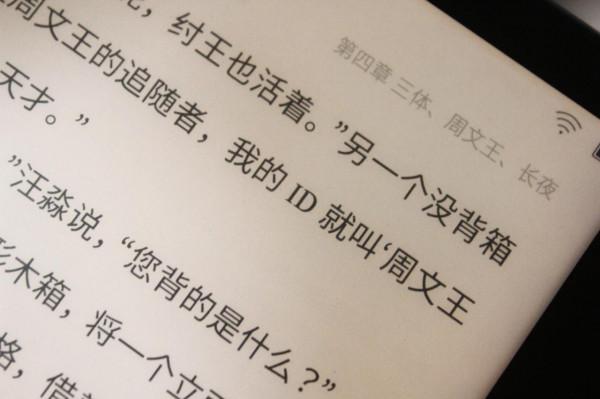 第四章 三体、周文王、长夜
纣王也活着。”另一个没背箱
周文王的追随者，我的 ID 就叫‘周文王
天才。”
”汪淼说，“您背的是什么？”
形木箱，将一个立
格，借